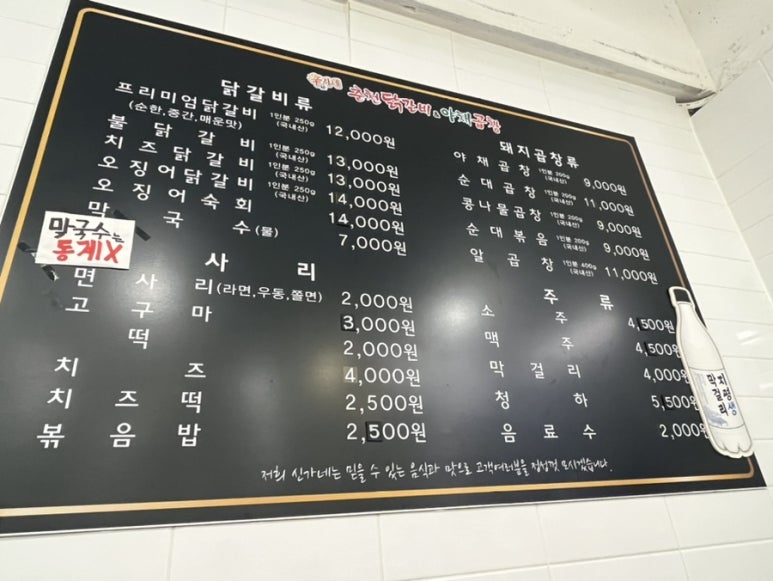 신가네 춘천닭갈비&야채곱창
닭갈비류
프리미엄닭갈비 1인분 250g (국내산) 12,000원
(순한,중간,매운맛)
불닭갈비 1인분 250g (국내산) 13,000원
치즈닭갈비 1인분 250g (국내산) 13,000원
오징어닭갈비 1인분 250g (국내산) 14,000원
오징어숙회 14,000원
막국수(물) 7,000원
막국수는
동계X
사리
면사리(라면,우동,쫄면) 2,000원
고구마 3,000원
떡 2,000원
치즈 4,000원
치즈떡 2,500원
볶음밥 2,500원
돼지곱창류
야채곱창 1인분 200g (국내산) 9,000원
순대곱창 1인분 200g (국내산) 11,000원
콩나물곱창 1인분 200g (국내산) 9,000원
순대볶음 1인분 200g (국내산) 9,000원
알곱창 1인분 400g (국내산) 11,000원
주류
소주 4,500원
맥주 4,500원
막걸리 4,000원
청하 5,500원
음료수 2,000원
지평생
막걸리
저희 신가네는 믿을 수 있는 음식과 맛으로 고객여러분을 정성껏 모시겠습니다.